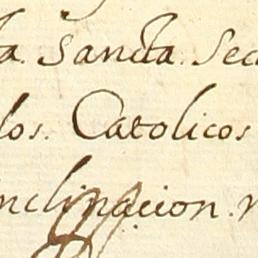 a. Sancta. Sec
los. Catolicos
nclinacion.